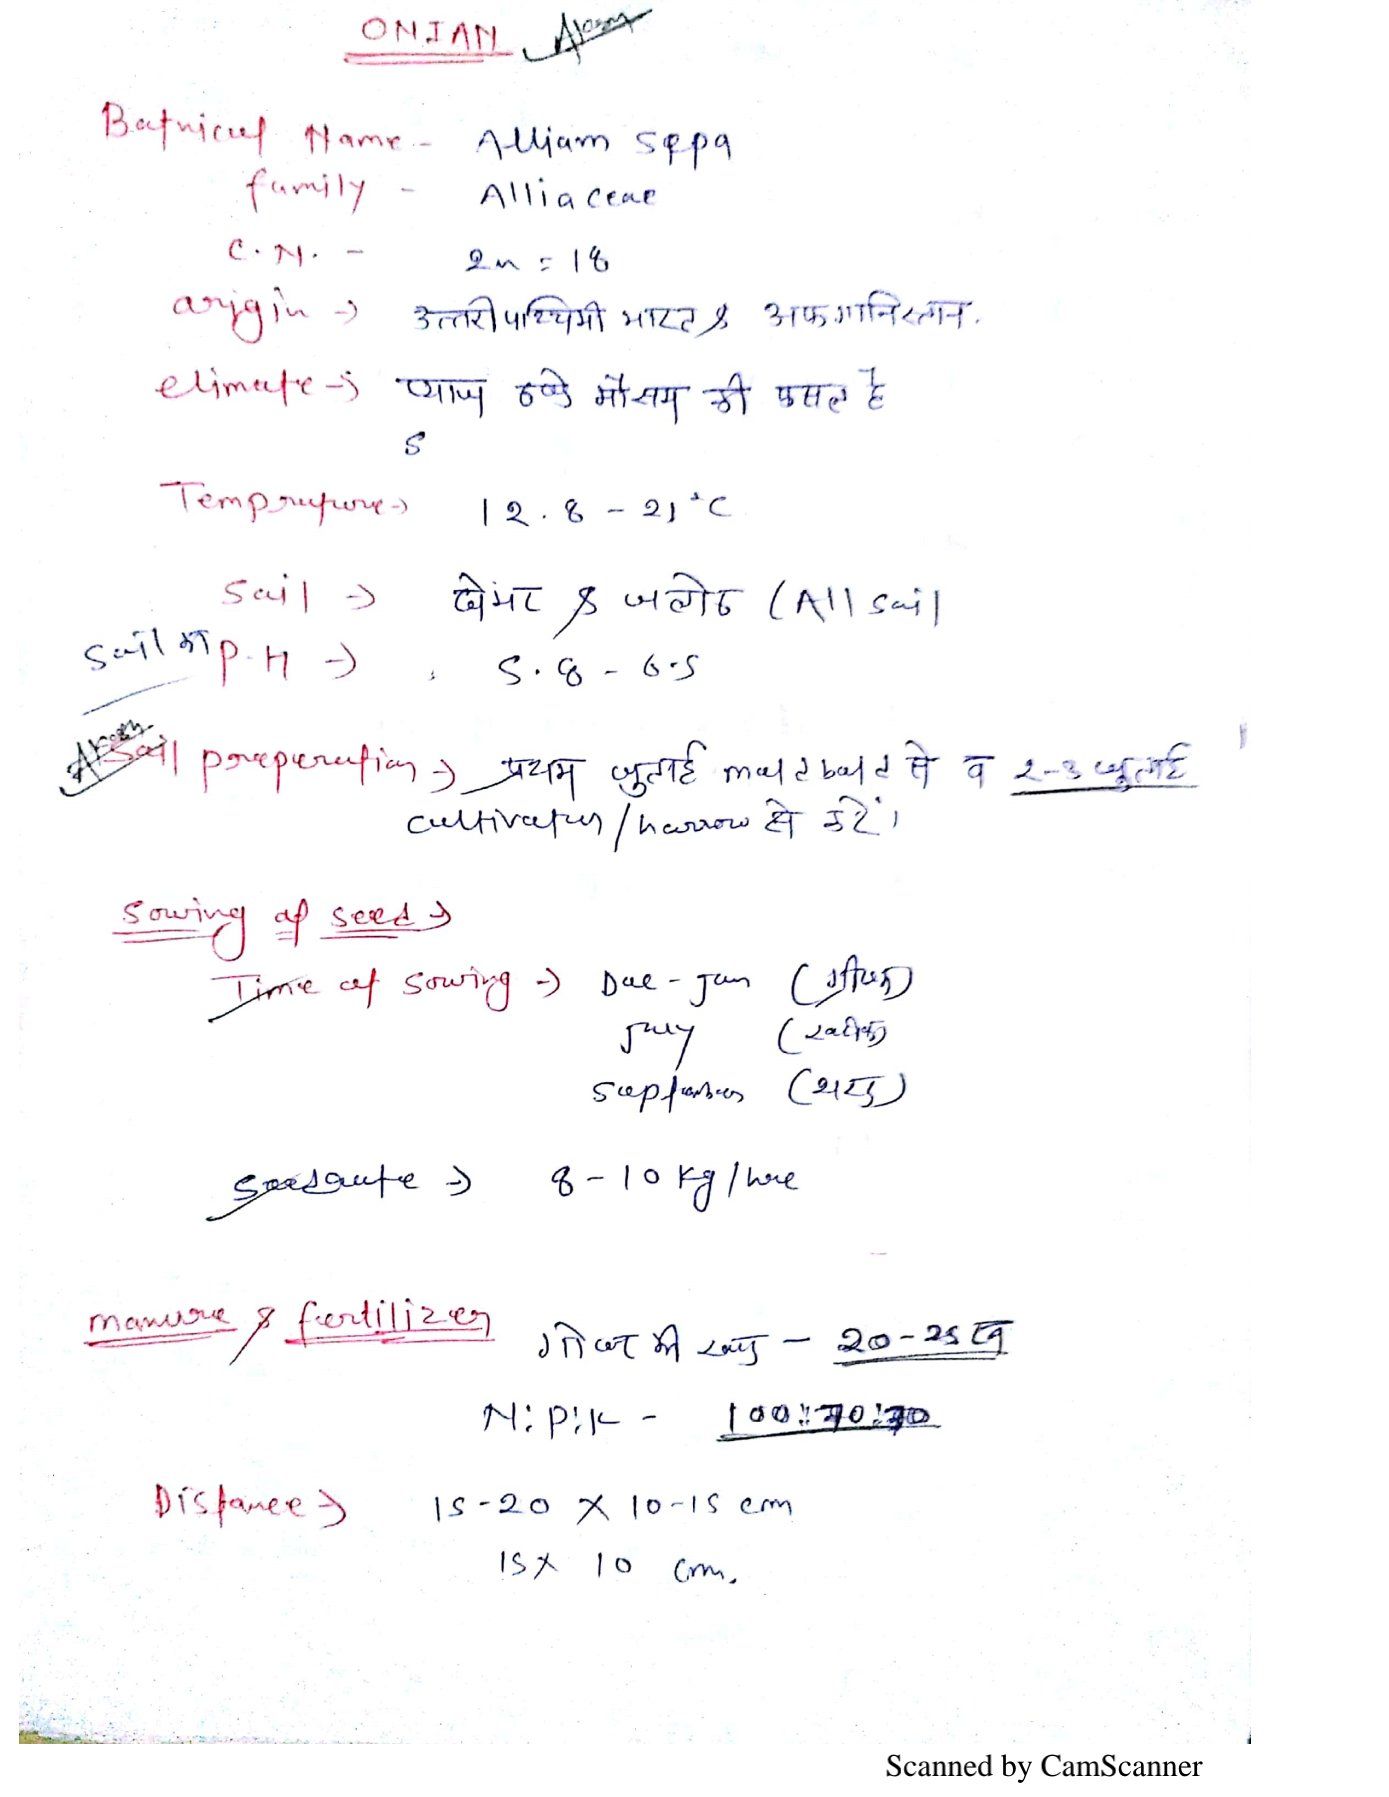 ONIAN
Batnical Name - Alliam seppa
family - Alliaceae
C.N. - 2n = 18
arigin → उत्तरी पश्चिमी भारत & अफगानिस्तान.
climate → प्याज ठण्डे मौसम की फसल है
S
Temprature → 12.8 - 21°C
Sail → दोमट & (All sail
Sail का P.H → 5.8 - 6.5
Sail preperation → प्रथम जुताई से व 2-3 जुताई
cultivator / harrow से करें।
Sowing of seed →
Time of sowing → - Jan
July
Seedrate → 8-10 kg /
manure & fertilizer
गोबर की खाद - 20-25 टन
N:P:K - 100:70:70
Distance → 15-20 X 10-15 cm
15 X 10 cm.
Scanned by CamScanner